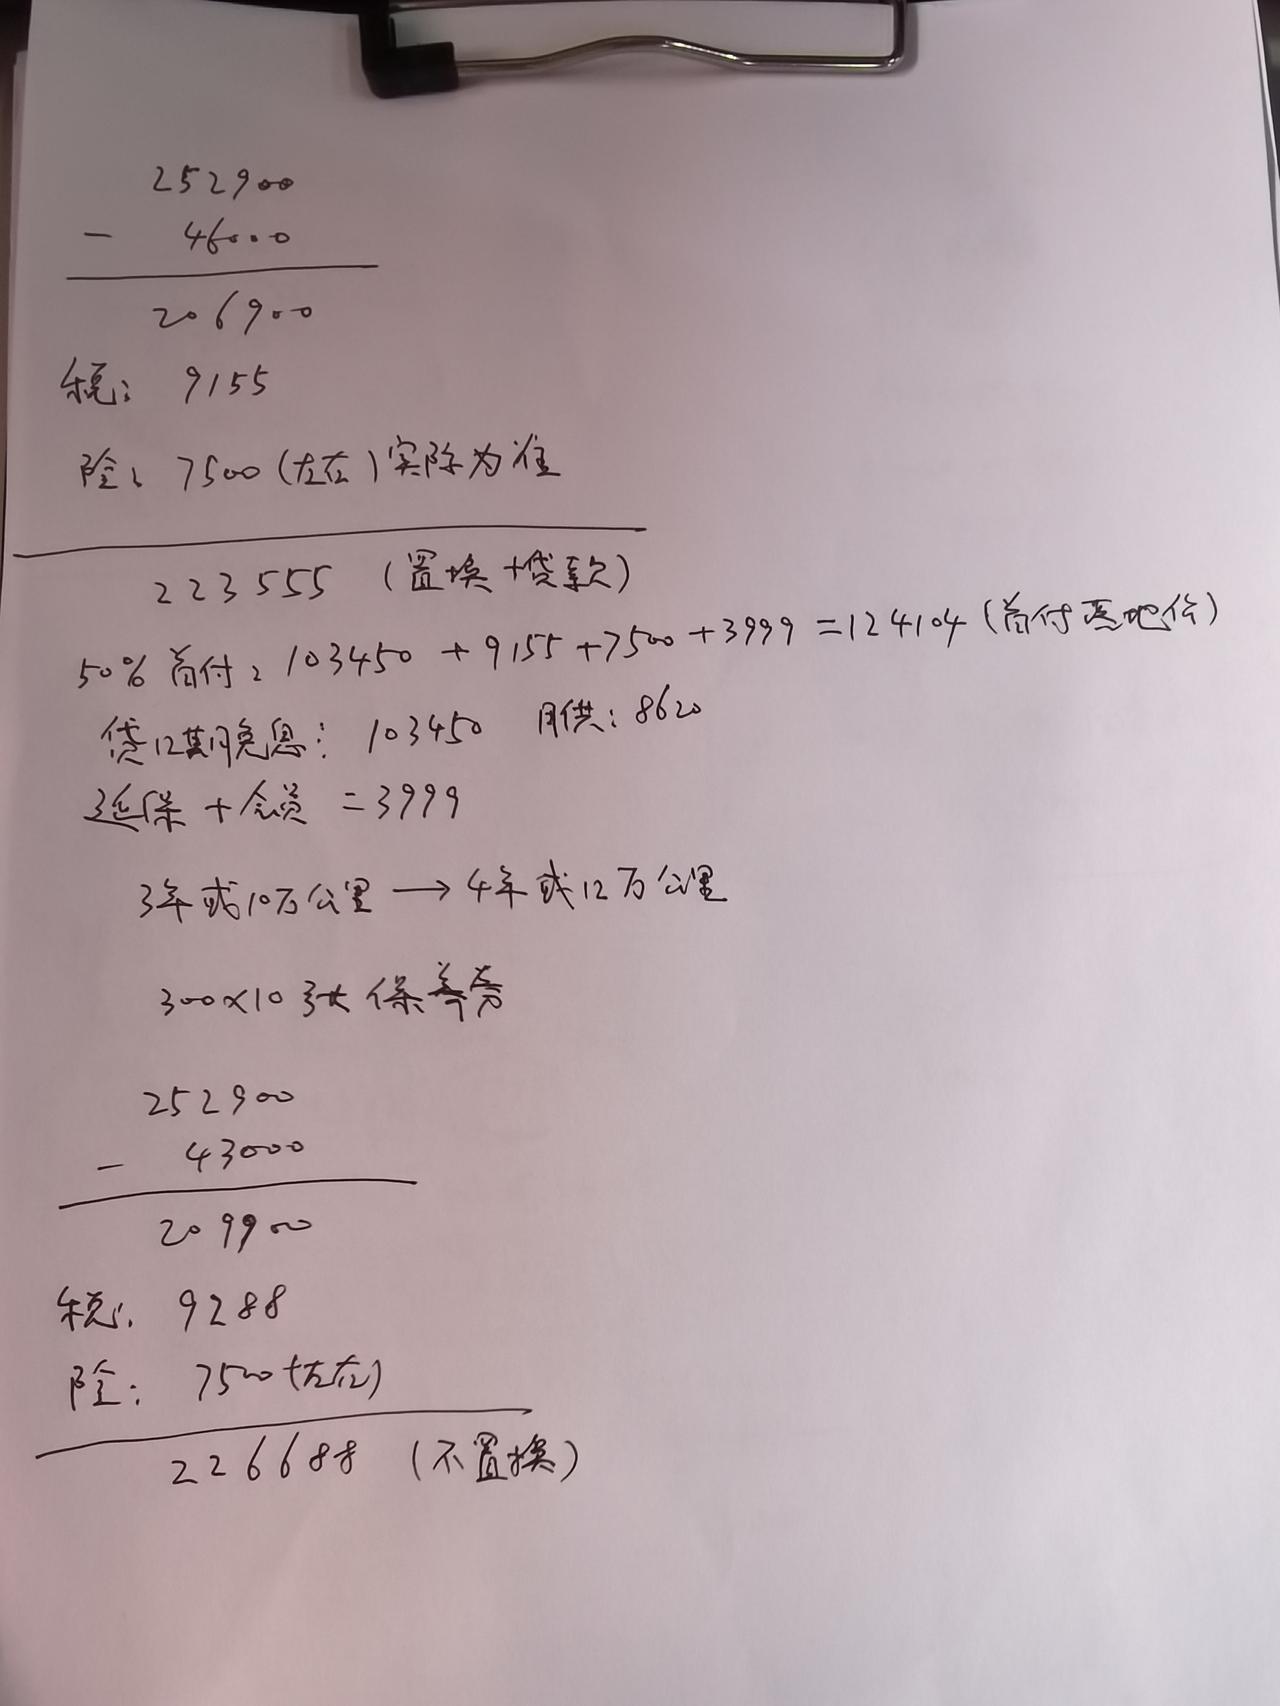 252900
- 46000
206900
税: 9155
险: 7500(左右)实际为准
223555 (置换+贷款)
50%首付: 103450 + 9155 + 7500 + 3999 = 124104 (首付落地价)
贷12期免息: 103450 月供: 8620
延保 + 会员 = 3999
3年或10万公里 → 4年或12万公里
300×10张保养券
252900
- 43000
209900
税: 9288
险: 7500(左右)
226688 (不置换)